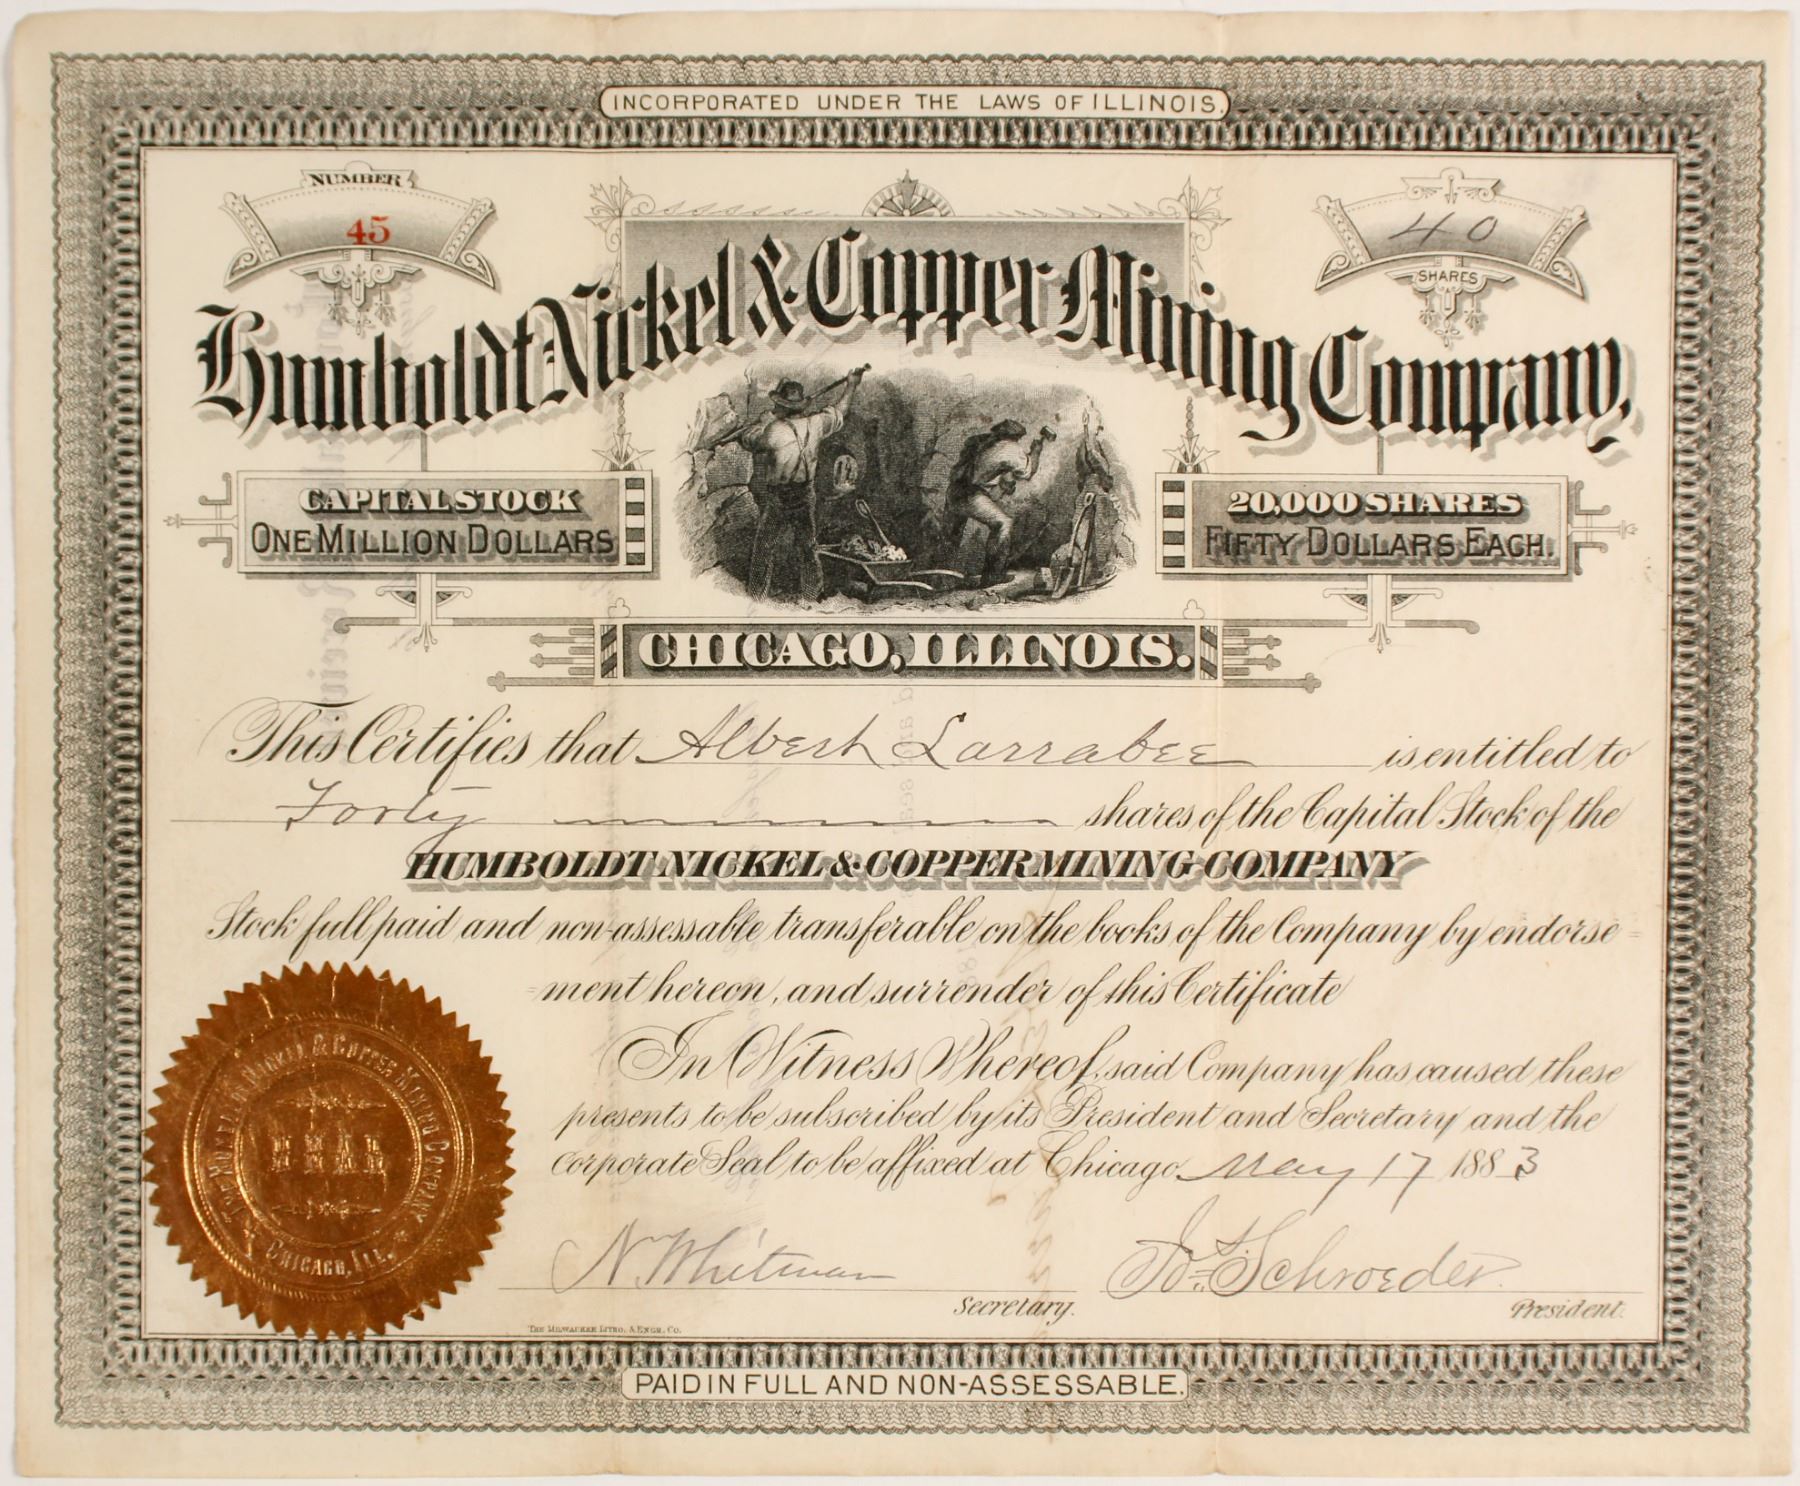 INCORPORATED UNDER THE LAWS OF ILLINOIS.
NUMBER
45
40
SHARES
Humboldt Nickel & Copper Mining Company,
CAPITAL STOCK
ONE MILLION DOLLARS
20,000 SHARES
FIFTY DOLLARS EACH.
CHICAGO, ILLINOIS.
This Certifies that Albert Larrabee is entitled to
Forty shares of the Capital Stock of the
HUMBOLDT NICKEL & COPPER MINING COMPANY
Stock full paid and non-assessable transferable on the books of the Company by endorse=
=ment hereon, and surrender of this Certificate
In Witness Whereof, said Company has caused these
presents to be subscribed by its President and Secretary and the
corporate Seal to be affixed at Chicago May 17 1883
THE HUMBOLDT NICKEL & COPPER MINING COMPANY
CHICAGO, ILL.
N. Whitman
Secretary.
Jos. Schroeder
President.
THE MILWAUKEE LITHO. & ENGR. CO.
PAID IN FULL AND NON-ASSESSABLE.